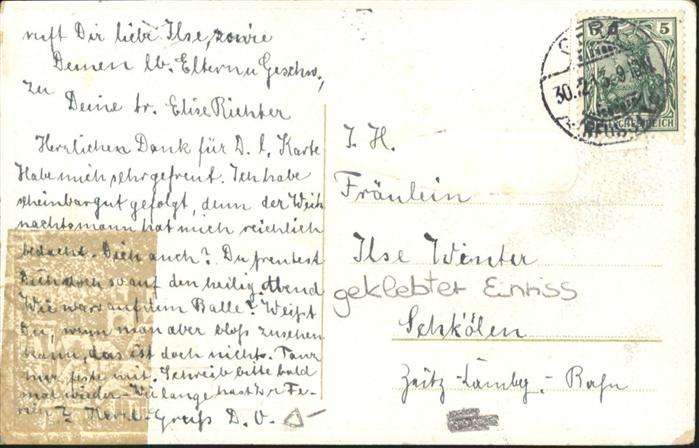 ruft Dir liebe Ilse, sowie
Deinen lb. Eltern u Geschw.,
zu
Deine tr. Elise Richter
Herzlichen Dank für D. l. Karte
Habe mich sehr gefreut. Ich habe
scheinbar gut gefolgt, denn der Weih
nachtsmann hat mich reichlich
bedacht. Dich auch? Du freutest
Dich doch so auf den heilig. Abend
Wie wars auf dem Balle? Weißt
Du, wenn man aber bloß zusehen
kann, das ist doch nichts. Tanz
nur feste mit. Schreib bitte bald
mal wieder. Wie lange hast Du Fe-
D. O.
GERA
30.12.
5
REICH
I. H.
Fräulein
Ilse Winter
geklebter Einriss
Schkölen
Zeitz-Camburg-Bahn